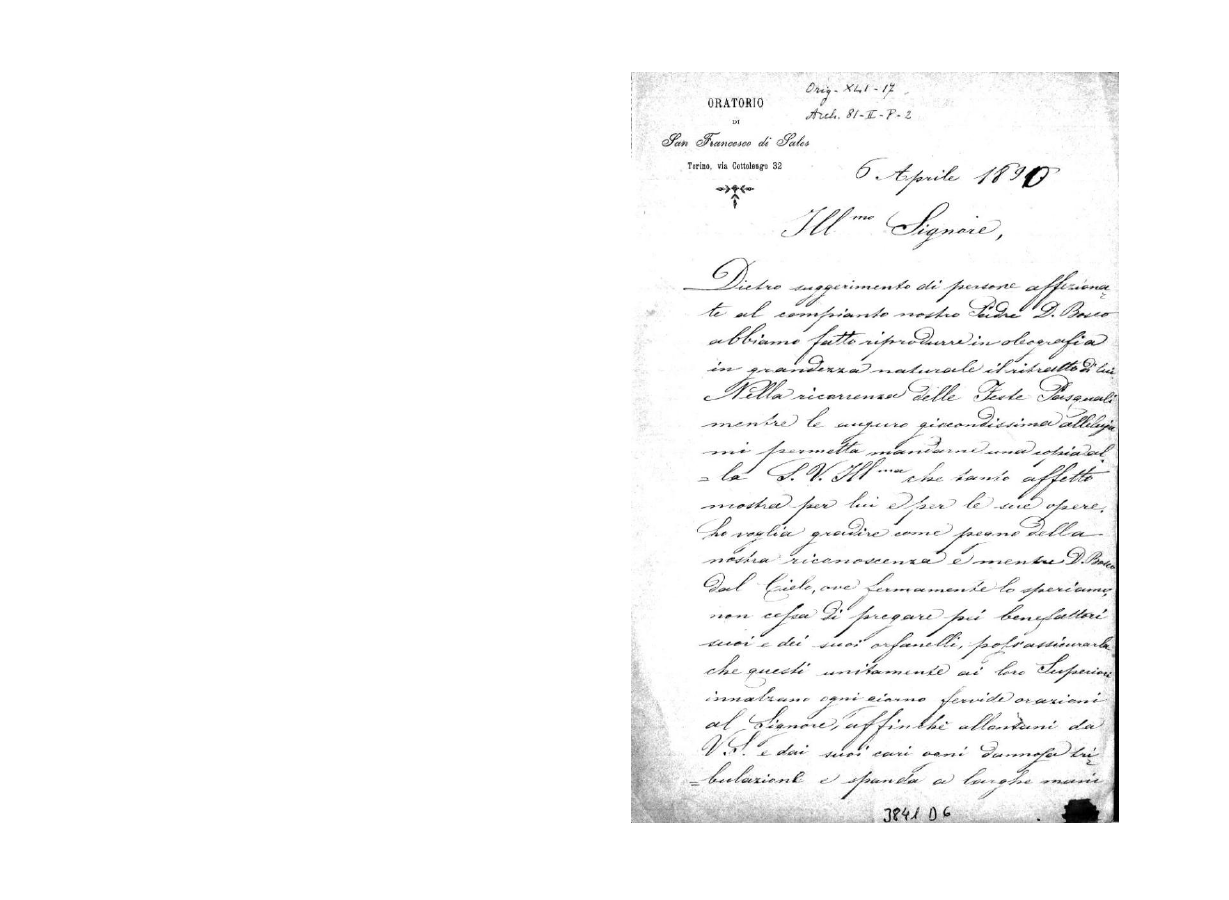 ORATORIO
DI
San Francesco di Sales
Torino, via Cottolengo 32
Orig - XLI - 17
Arch. 81-II-P-2
6 Aprile 1890
Ill.mo Signore,
Dietro suggerimento di persone affeziona-
te al compianto nostro Padre D. Bosco
abbiamo fatto riprodurre in oleografia
in grandezza naturale il ritratto di lui
Nella ricorrenza delle Feste Pasquali
mentre le auguro giocondissima alleluja
mi permetta mandarne una copia al-
=la S. V. Ill.ma che tanto affetto
mostra per lui e per le sue opere.
La voglia gradire come pegno della
nostra riconoscenza e mentre D. Bosco
dal Cielo, ove fermamente lo speriamo,
non cessa di pregare pei benefattori
suoi e dei suoi orfanelli, posso assicurarla
che questi unitamente ai loro Superiori
innalzano ogni giorno fervide orazioni
al Signore, affinchè allontani da
V. S. e dai suoi cari ogni dannosa tri-
=bulazione e spanda a larghe mani
3841 D6